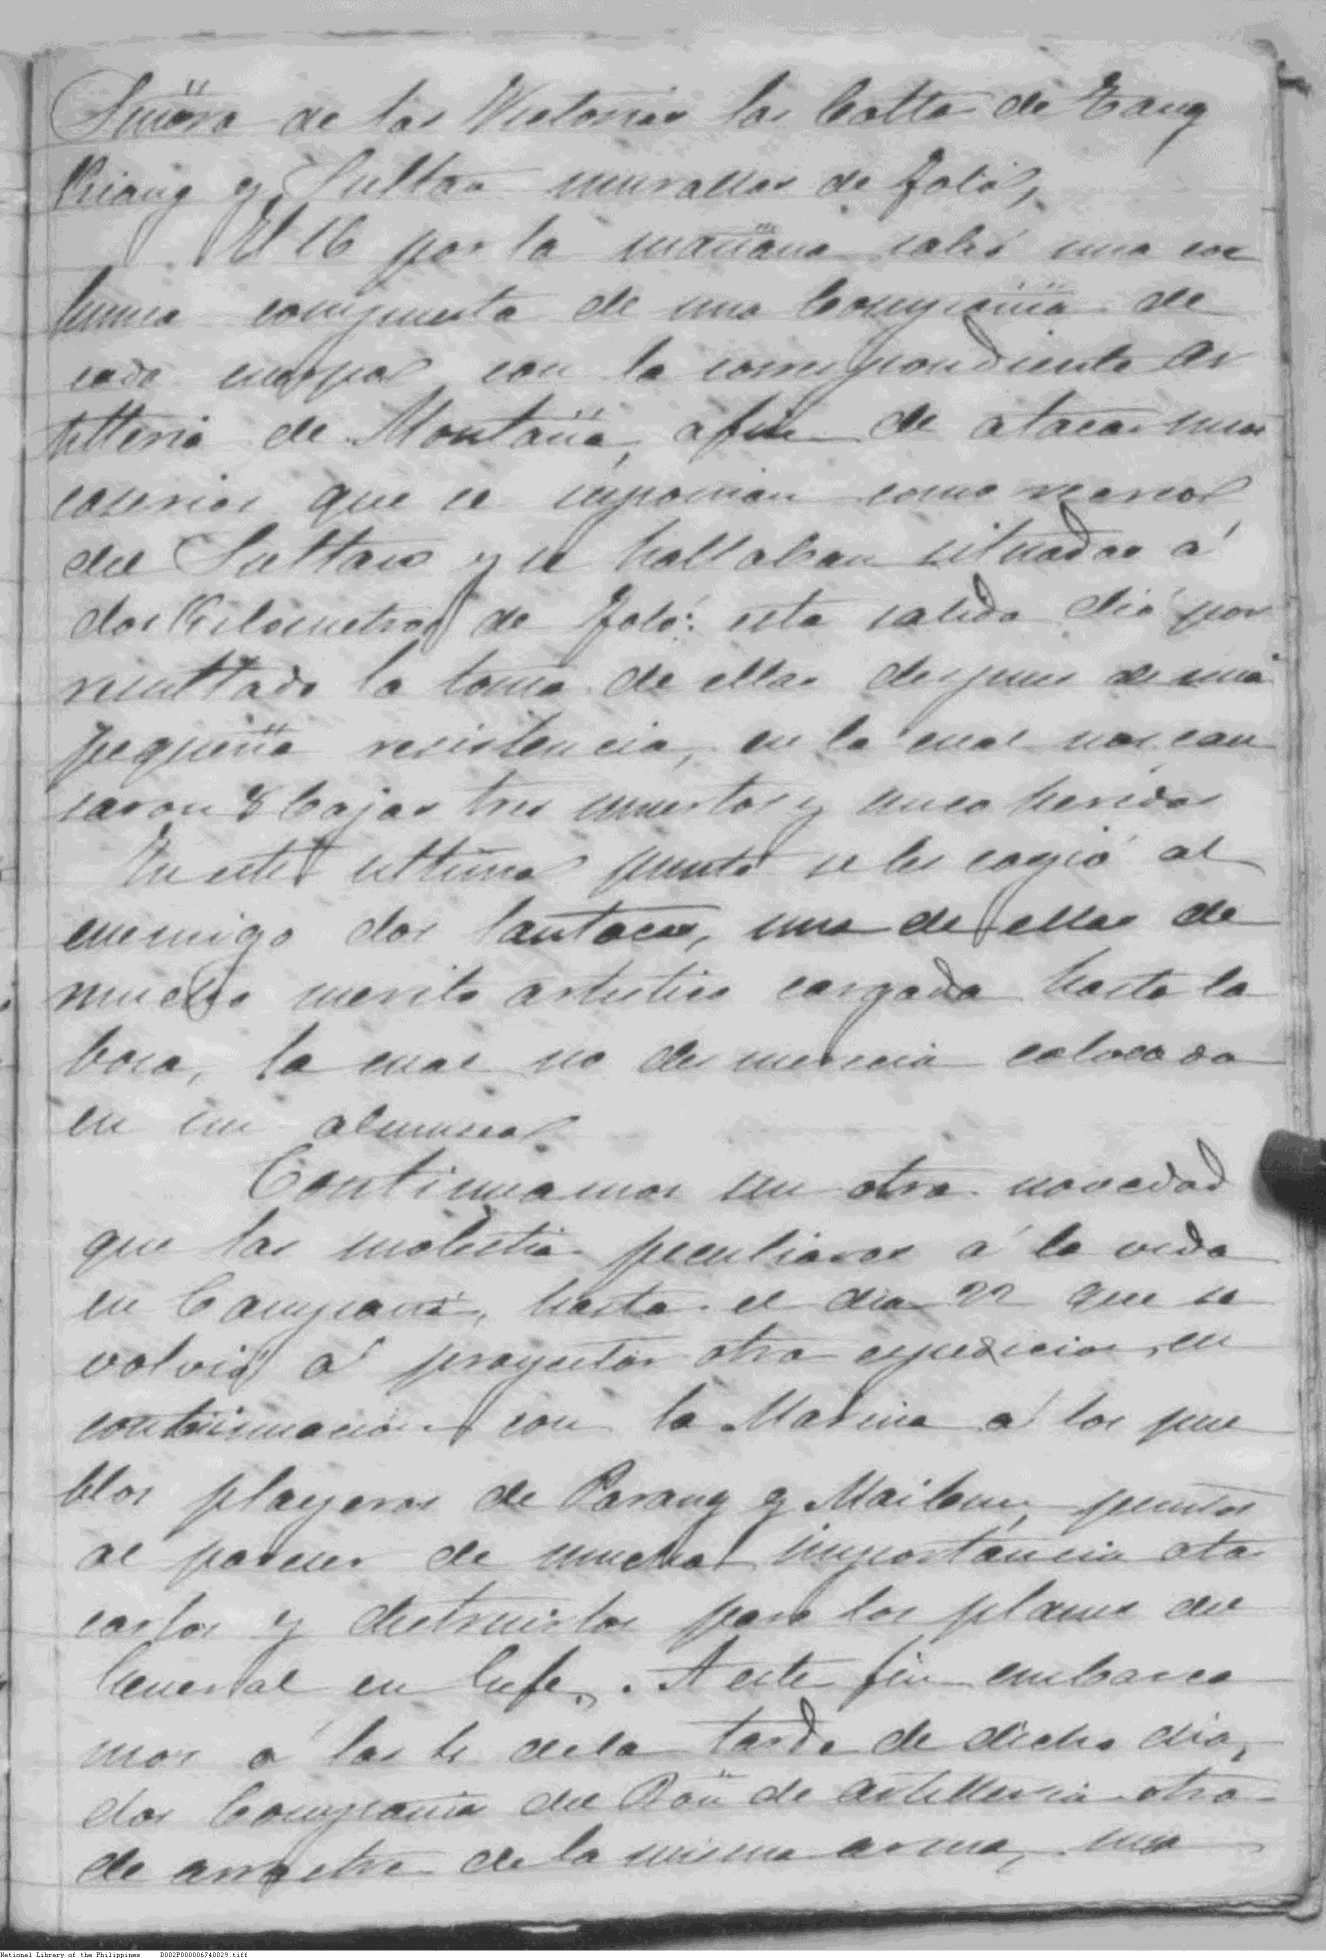 Señora de las Victorias las Cottas de Tang
Kiang y Sultan murallas de Joló,
El 16 por la mañana salió una co
lumna compuesta de una Compañia de
cada cuerpo con la correspondiente Ar
tilleria de Montaña, afin de atacar unos
caserios que se suponian como
del Sultan y se hallaban situados á
dos Kilometros de Joló: esta salida dió por
resultado la toma de ellas despues de una
pequeña resistencia, en la cual nos cau
saron 8 bajas tres muertos y cinco heridos
En este ultimo punto se les cogió al
enemigo dos lantacas, una de ellas de
mucho merito artistico cargada hasta la
boca, la cual no desmerecia colocada
en un
Continuamos sin otra novedad
que las molestias peculiares á la vida
en Campaña, hasta el dia 22 que se
volvió á proyectar otra expedicion, en
con la Marina á los pue
blos playeros de Parang y Maibun, puntos
al parecer de mucha importancia ata
carlos y destruirlos para los planes del
General en Gefe. A este fin embarca
mos á las 4 dela tarde de dicho dia,
dos Compañias del Ron de artilleria otra
de arrastre de la misma arma, una
National Library of the Philippines D002P000006740029.tiff